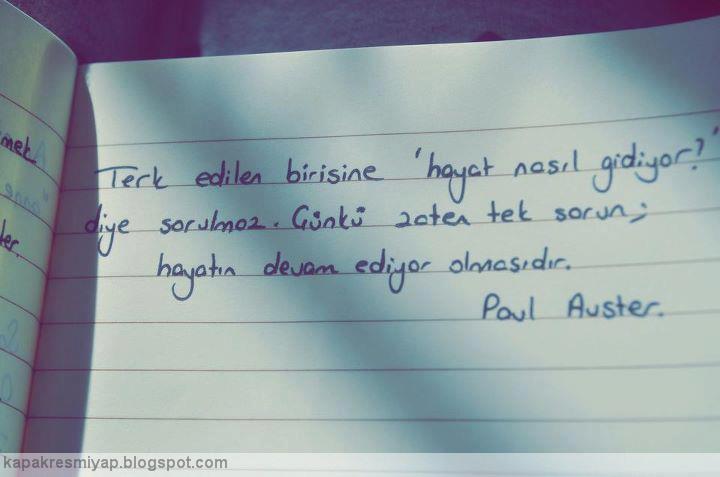 mek
ler.
Terk edilen birisine 'hayat nasıl gidiyor?'
diye sorulmaz. Günkü zaten tek sorun;
hayatın devam ediyor olmasıdır.
Paul Auster.
kapakresmiyap.blogspot.com